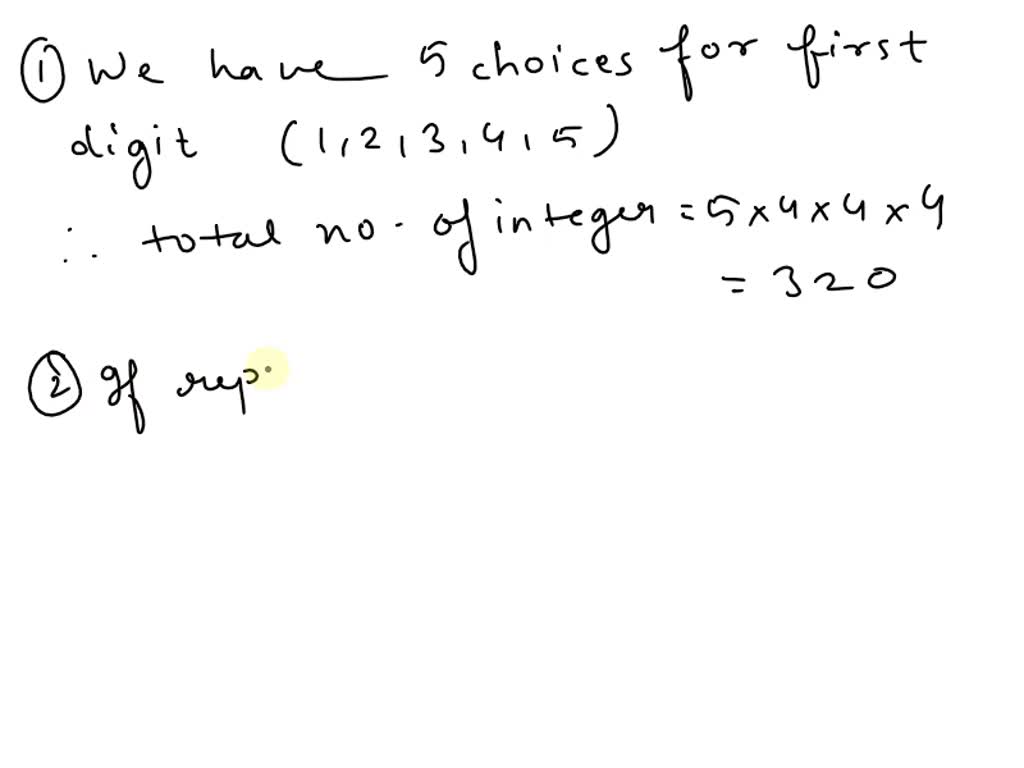 ① We have 5 choices for first
digit (1,2,3,4,5)
∴ total no. of integer = 5×4×4×4
= 320
② If rep